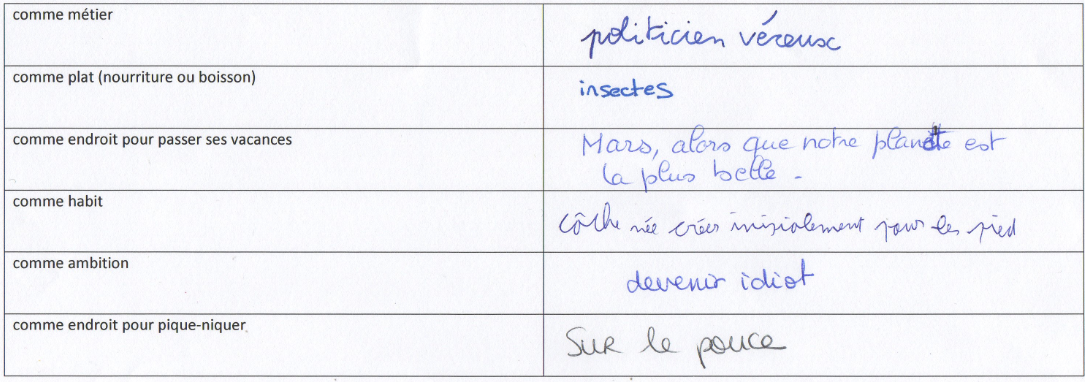 comme métier
politicien véreux
comme plat (nourriture ou boisson)
insectes
comme endroit pour passer ses vacances
Mars, alors que notre planète est
la plus belle.
comme habit
née créer inisialement pour les pied
comme ambition
devenir idiot
comme endroit pour pique-niquer
Sur le pouce